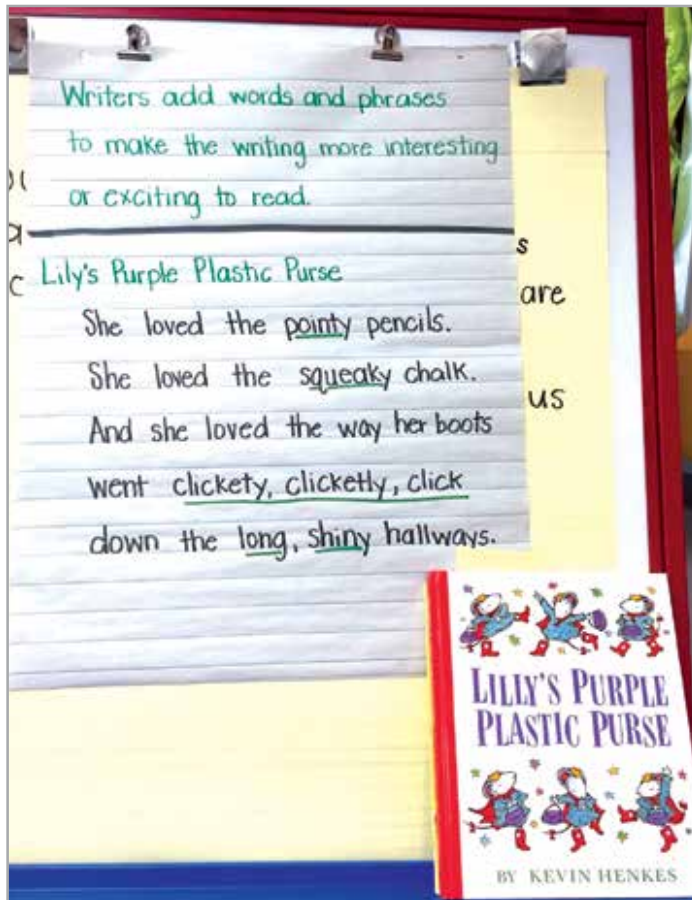 Writers add words and phrases
to make the writing more interesting
or exciting to read.
Lily's Purple Plastic Purse
She loved the pointy pencils.
She loved the squeaky chalk.
And she loved the way her boots
went clickety, clicketly, click
down the long, shiny hallways.
s
are
us
LILLY'S PURPLE
PLASTIC PURSE
BY KEVIN HENKES